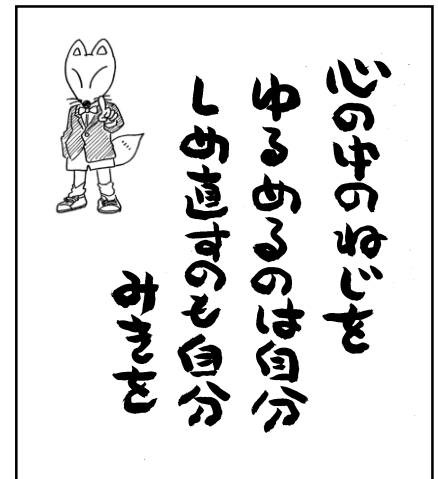 心の中のねじを
ゆるめるのは自分
しめ直すのも自分
みきを